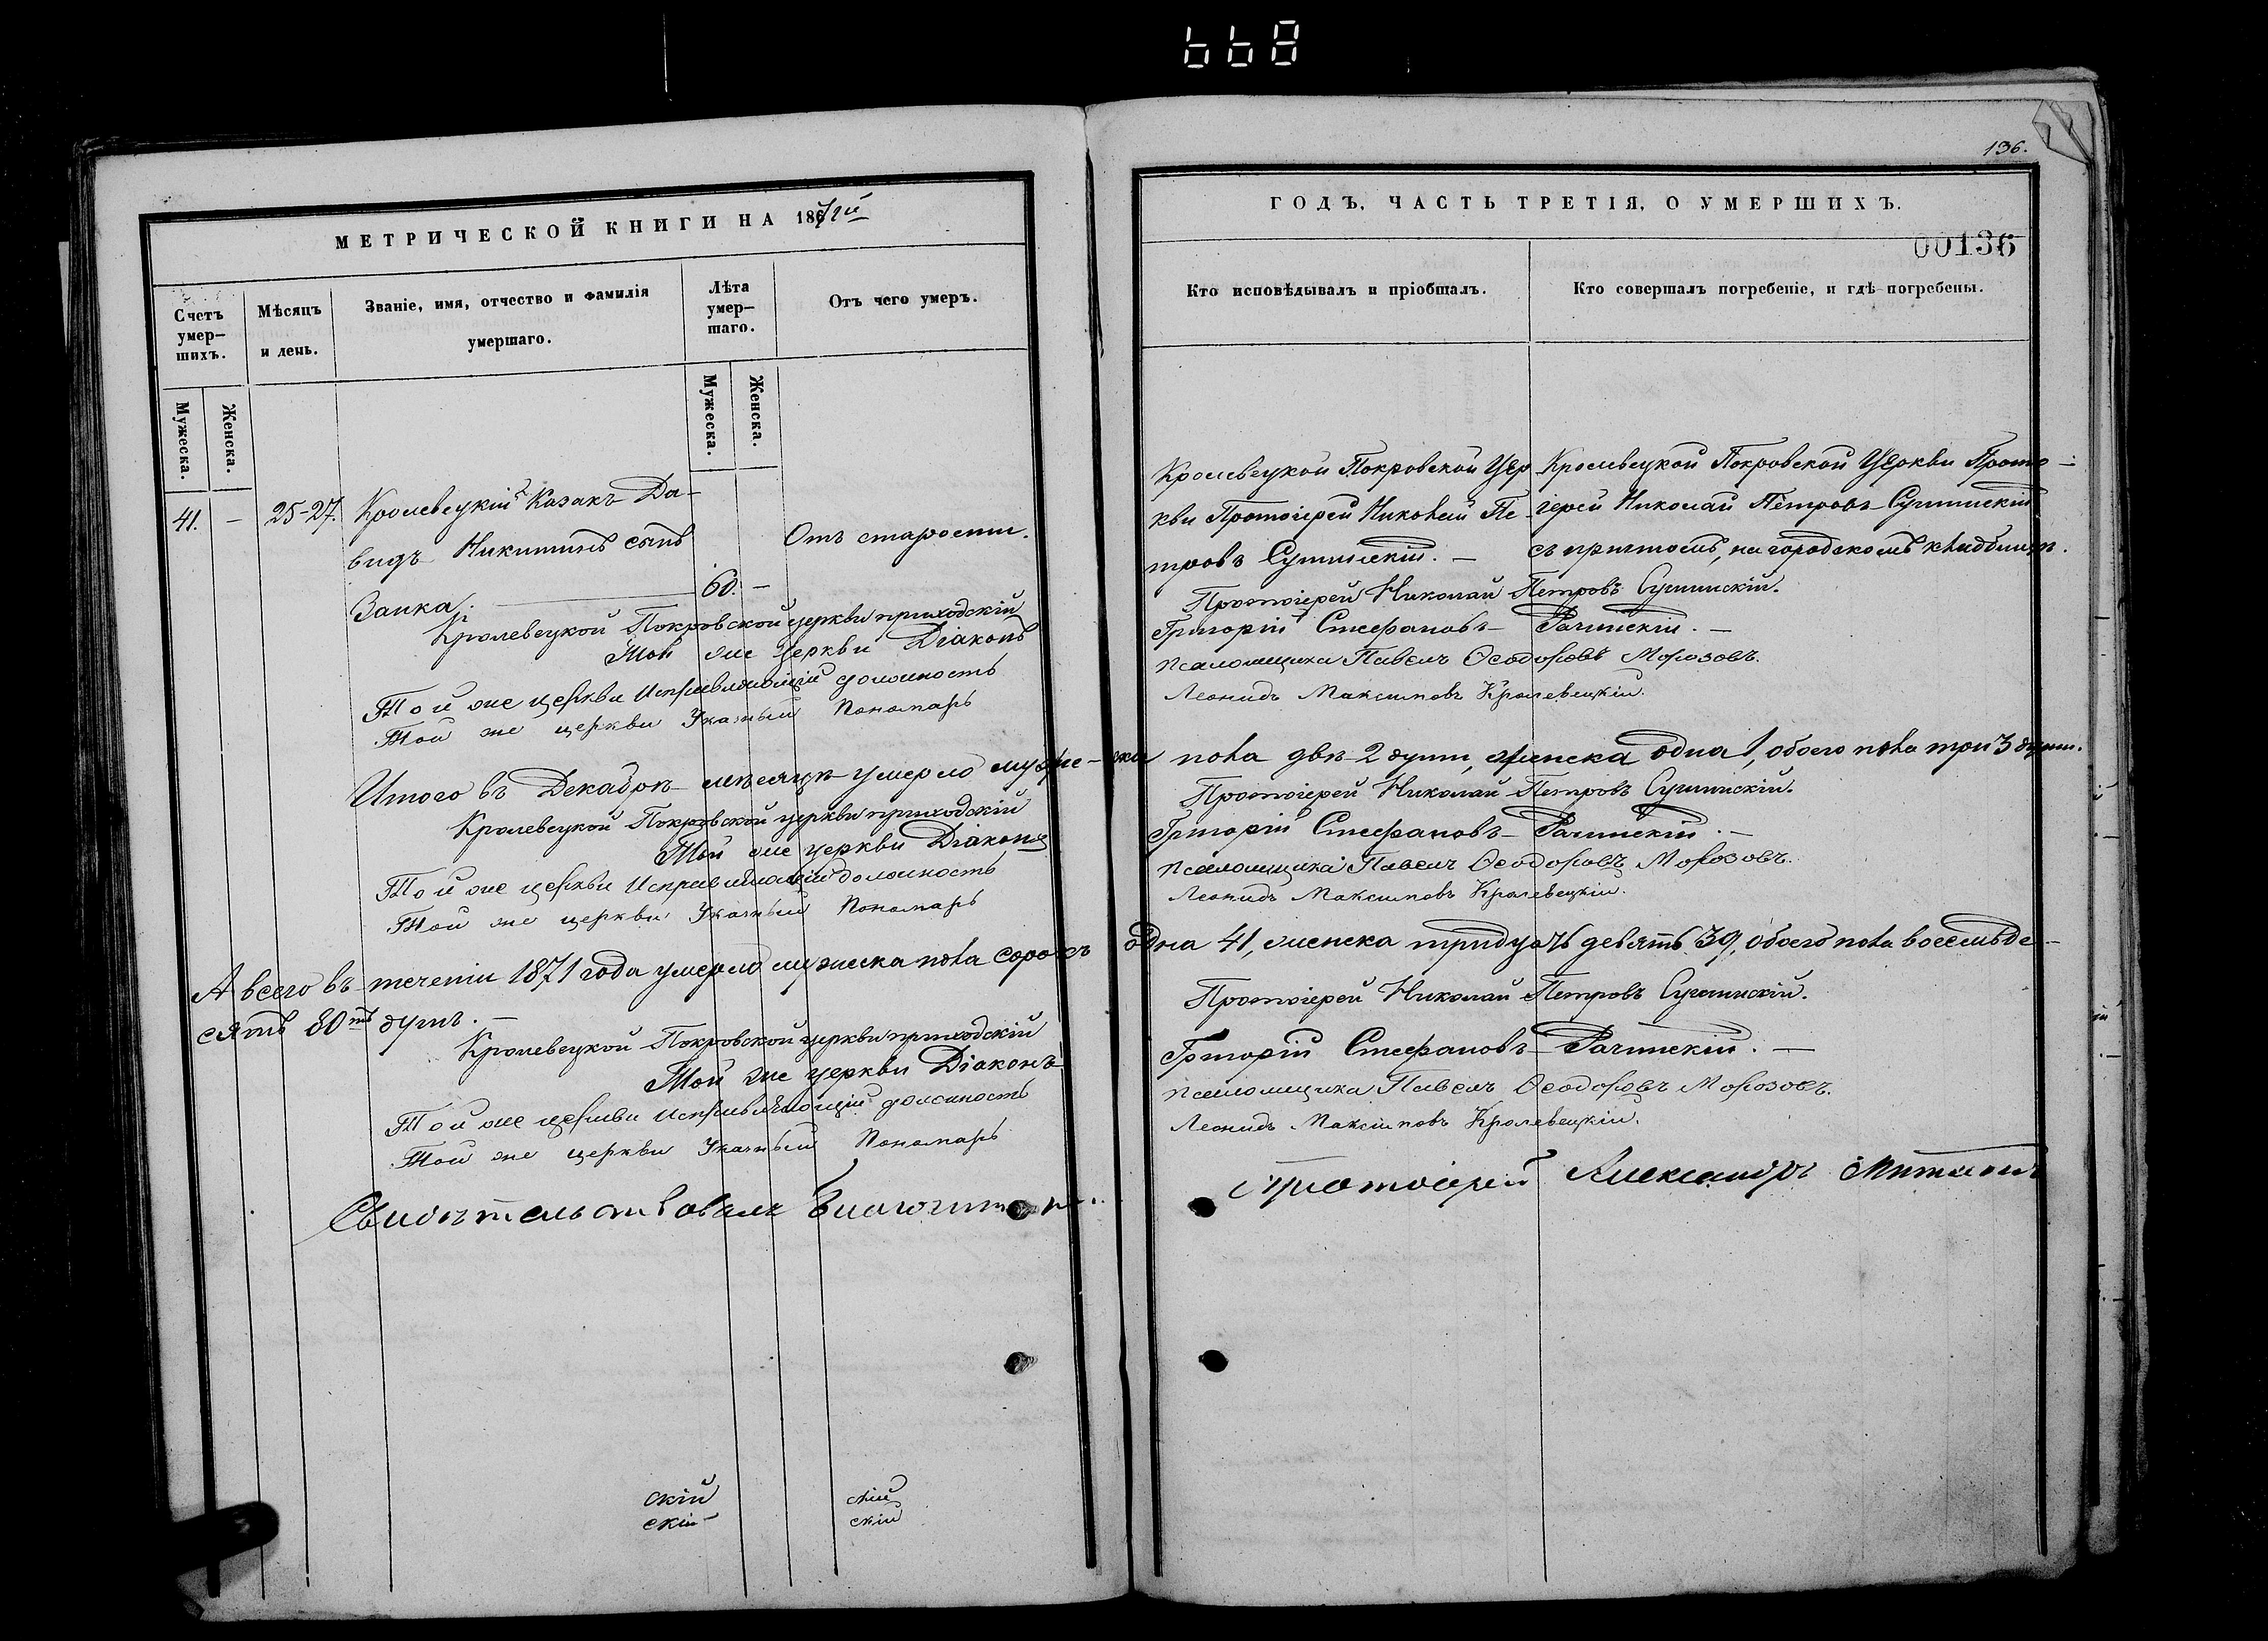 668
136.
МЕТРИЧЕСКОЙ КНИГИ НА 1871й
ГОДЪ, ЧАСТЬ ТРЕТІЯ, О УМЕРШИХЪ.
00136
Счетъ умер-
шихъ.
Мѣсяцъ
и день.
Званіе, имя, отчество и фамилія
умершаго.
Лѣта
умер-
шаго.
Отъ чего умеръ.
Кто исповѣдывалъ и пріобщалъ.
Кто совершалъ погребеніе, и гдѣ погребены.
Мужеска.
Женска.
Мужеска.
Женска.
41. — 25-27. Кролевецкій Казакъ Да-
видъ Никитинъ сынъ
Заика. 60. —
Отъ старости.
Кролевецкой Покровской Цер
кви Протоіерей Николай Пе-
тровъ Сущинскій. —
Кролевецкой Покровской Церкви Прото-
іерей Николай Петровъ Сущинскій
съ причтомъ, на городскомъ кладбищѣ.
Кролевецкой Покровской церкви приходскій Протоіерей Николай Петровъ Сущинскій.
Той же церкви Діаконъ Григорій Стефановъ Рачинскій. —
Той же церкви Исправляющій должность псаломщика Павелъ Ѳеодоровъ Морозовъ.
Той же церкви Указный Пономарь Леонидъ Максимовъ Кролевецкій.
Итого въ Декабрѣ мѣсяцѣ умерло муже-ска пола двѣ 2 души, женска одна 1, обоего пола три 3 души.
Кролевецкой Покровской церкви приходскій Протоіерей Николай Петровъ Сущинскій.
Той же церкви Діаконъ Григорій Стефановъ Рачинскій. —
Той же церкви Исправляющій должность псаломщика Павелъ Ѳеодоровъ Морозовъ.
Той же церкви Указный Пономарь Леонидъ Максимовъ Кролевецкій.
А всего въ теченіи 1871 года умерло мужеска пола сорокъ одна 41, женска тридцать девять 39, обоего пола восемьде-
сятъ 80тъ душъ. —
Кролевецкой Покровской церкви приходскій Протоіерей Николай Петровъ Сущинскій.
Той же церкви Діаконъ Григорій Стефановъ Рачинскій. —
Той же церкви Исправляющій должность псаломщика Павелъ Ѳеодоровъ Морозовъ.
Той же церкви Указный Пономарь Леонидъ Максимовъ Кролевецкій.
Свидѣтельствовалъ Благочинный Протоіерей Александръ
скій скій
скій скій